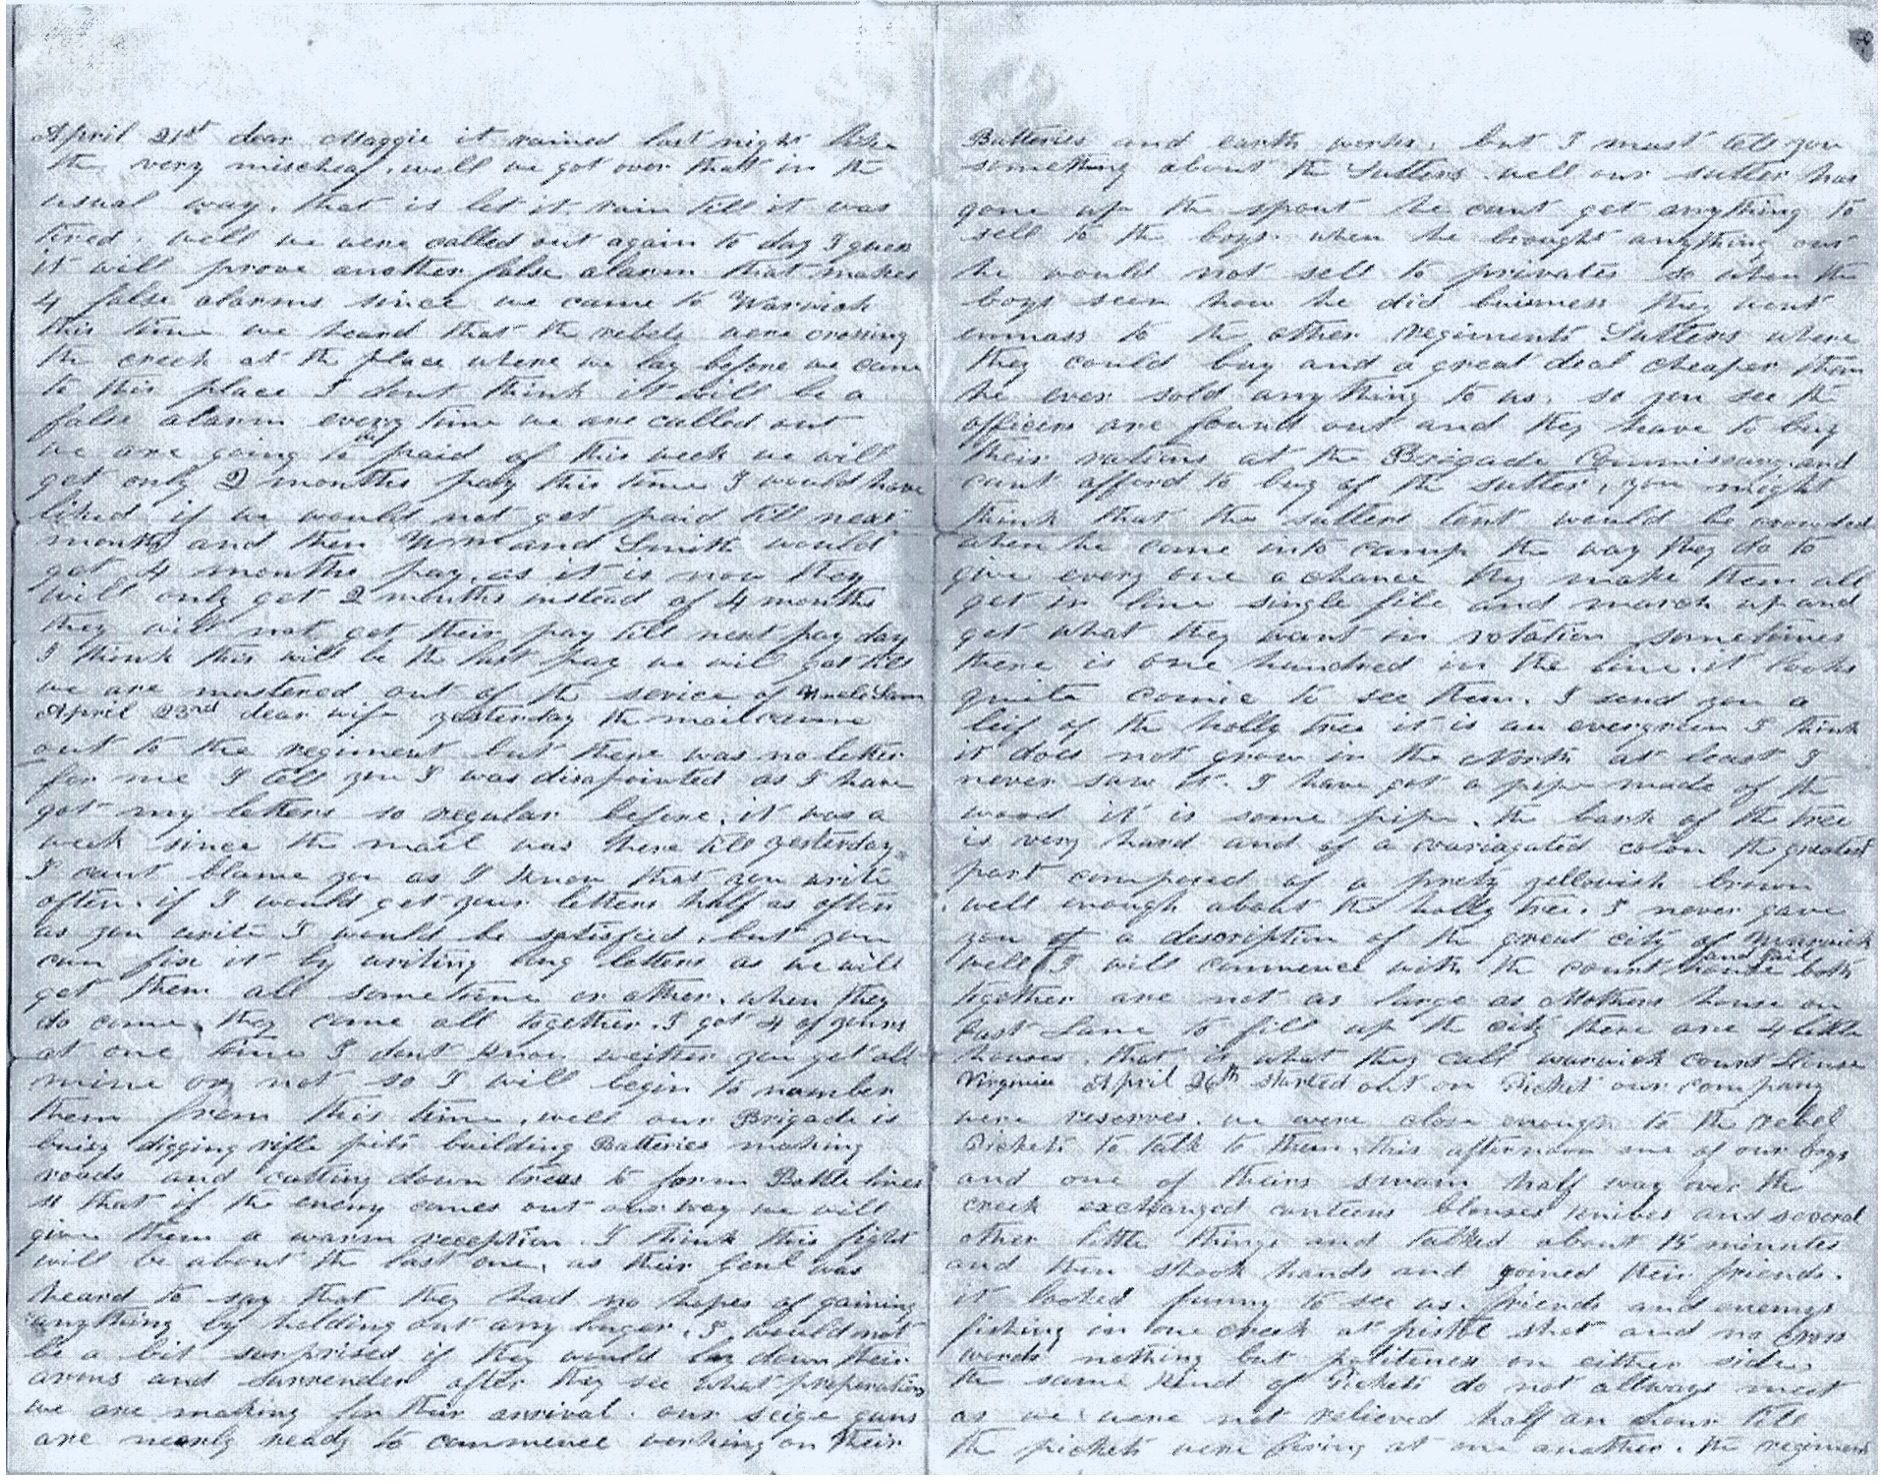 April 21st dear Maggie it rained last night like
the very mischeaf, well we got over that in the
usual way, that is let it rain till it was
tired. well we were called out again to day I guess
it will prove another false alarm that makes
4 false alarms since we came to Warwick
this time we heard that the rebels were crossing
the creek at the place where we lay before we came
to this place I dont think it will be a
false alarm every time we are called out
we are going to be paid of this week we will
get only 2 months pay this time I would have
liked if we would not get paid till next
month and then Wm and Smith would
get 4 months pay, as it is now they
will only get 2 months instead of 4 months
they will not get their pay till next pay day
I think this will be the last pay we will get till
we are mustered out of the service of Uncle Sam
April 23rd dear wife yesterday the mail came
out to the regiment but there was no letter
for me I tell you I was disapointed as I have
got my letters so regular before, it was a
week since the mail was here till yesterday
I cant blame you as I know that you write
often. if I would get your letters half as often
as you write I would be satisfied, but you
can fix it by writing long letters as we will
get them all sometime or other. when they
do come, they come all together. I got 4 of yours
at one time I dont know weither you get all
mine or not so I will begin to number
them from this time, well our Brigade is
buisy digging rifle pits building Batteries making
roads and cutting down trees to form Battle lines
so that if the enemy comes out our way we will
give them a warm reception. I think this fight
will be about the last one, as their Genl was
heard to say that they had no hopes of gaining
anything by holding out any longer. I would not
be a bit surprised if they would lay down their
arms and surrender after they see what preperations
we are making for their arrival. our seige guns
are nearly ready to commence working on their
Batteries and earth works, but I must tell you
something about the Sutlers. well our sutler has
gone up the spout he cant get anything to
sell to the boys. when he brought anything out
he would not sell to privates so when the
boys seen how he did buisness they went
enmass to the other regiments Sutlers where
they could buy and a great deal cheaper than
he ever sold anything to us. so you see the
officers are found out and they have to buy
their rations at the Brigade Commissary and
cant afford to buy of the sutler, you might
think that the sutlers tent would be crowded
when he came into camp the way they do to
give every one a chance they make them all
get in line single file and march up and
get what they want in rotation sometimes
there is one hundred in the line. it looks
quite comic to see them. I send you a
leif of the holly tree it is an evergreen I think
it does not grow in the North at least I
never saw it. I have got a pipe made of the
wood it is some pipe. the bark of the tree
is very hard and of a variagated color the greatest
part composed of a prety yellowish brown
well enough about the holly tree. I never gave
you of a description of the great city of Warwick
well I will commence with the court house and jail both
together are not as large as Mothers house on
Last Lane to fill up the city there are 4 little
houses. that is what they call warwick Court House
Virginia April 26th started out on Picket our company
were reserves. we were close enough to the rebel
Pickets to talk to them. this afternoon one of our boys
and one of theirs swam half way over the
creek exchanged canteens blouses knives and several
other little things and talked about 15 minutes
and then shook hands and joined their friends.
it looked funny to see us. friends and enemys
fishing in one creek at pistol shot and no cross
words nothing but politeness on either side.
the same kind of Pickets do not allways meet
as we were not relieved half an hour till
the pickets were firing at one another. the regiment